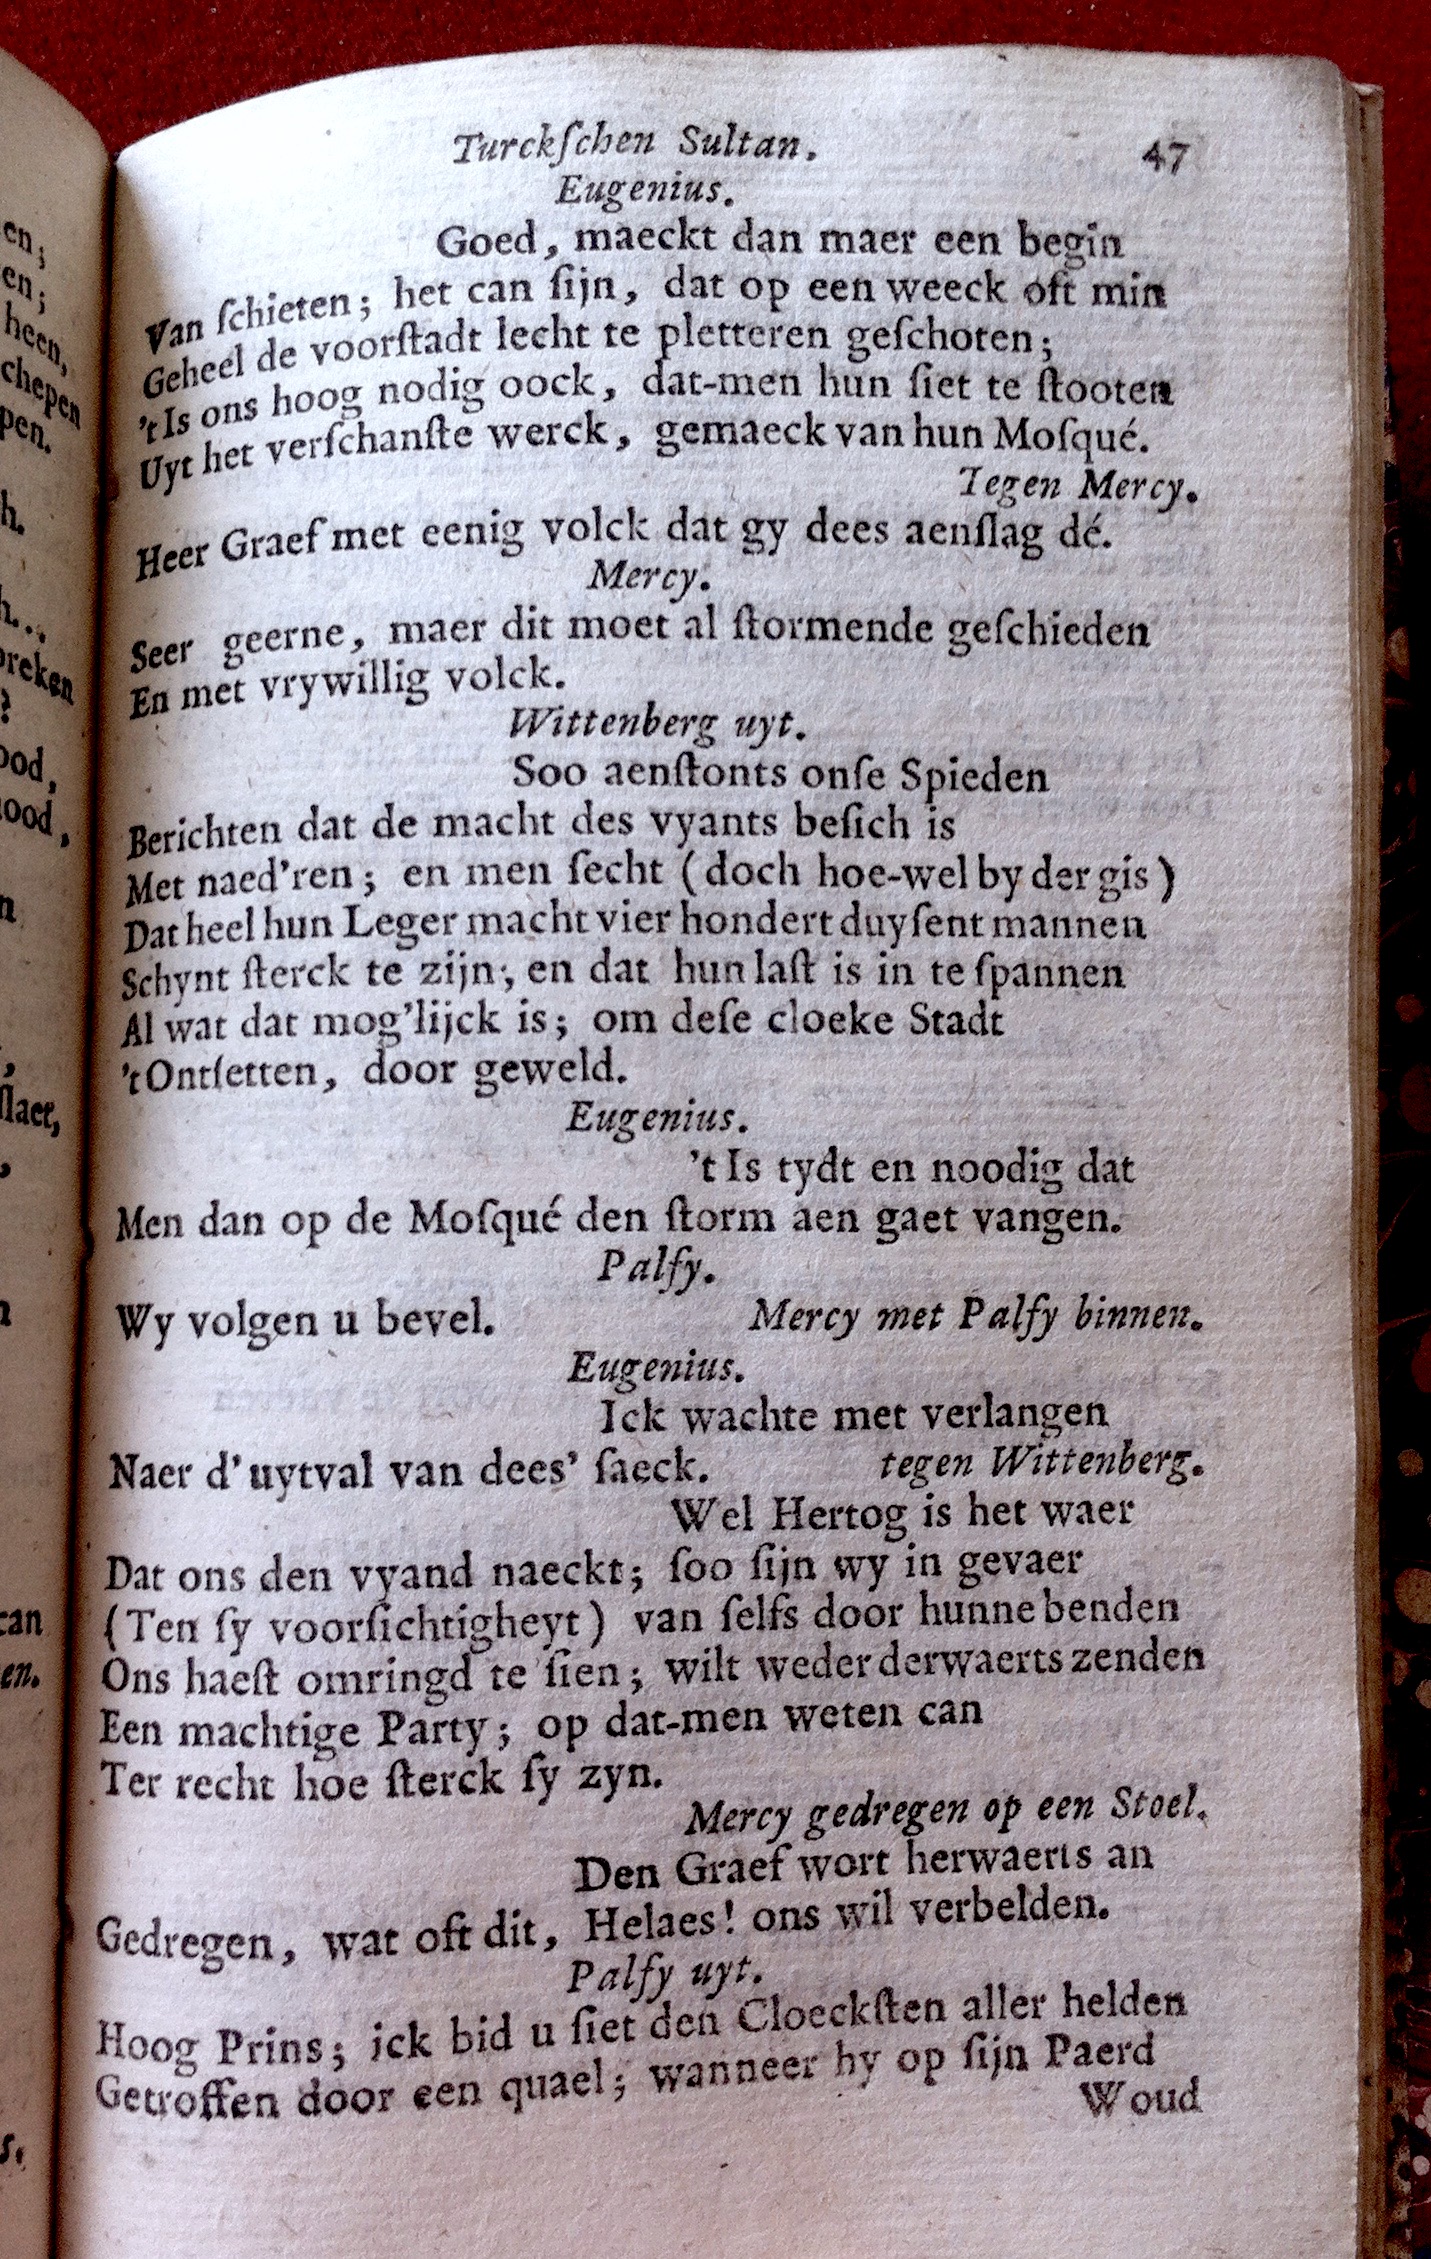 en;
en;
heen,
chepen
pen.
h.
h...
breken
?
ood,
ood,
n
,
slaet,
,
n
can
en.
s.
Turckſchen Sultan. 47
Eugenius.
Goed, maeckt dan maer een begin
Van ſchieten; het can ſijn, dat op een weeck oft min
Geheel de voorſtadt lecht te pletteren geſchoten;
't Is ons hoog nodig oock, dat-men hun ſiet te ſtooten
Uyt het verſchanſte werck, gemaeck van hun Moſqué.
Tegen Mercy.
Heer Graef met eenig volck dat gy dees aenſlag dé.
Mercy.
Seer geerne, maer dit moet al ſtormende geſchieden
En met vrywillig volck.
Wittenberg uyt.
Soo aenſtonts onſe Spieden
Berichten dat de macht des vyants beſich is
Met naed'ren; en men ſecht (doch hoe-wel by der gis)
Dat heel hun Leger macht vier hondert duyſent mannen
Schynt ſterck te zijn; en dat hun laſt is in te ſpannen
Al wat dat mog'lijck is; om deſe cloeke Stadt
't Ontſetten, door geweld.
Eugenius.
't Is tydt en noodig dat
Men dan op de Moſqué den ſtorm aen gaet vangen.
Palfy.
Wy volgen u bevel. Mercy met Palfy binnen.
Eugenius.
Ick wachte met verlangen
Naer d' uytval van dees' ſaeck. tegen Wittenberg.
Wel Hertog is het waer
Dat ons den vyand naeckt; ſoo ſijn wy in gevaer
(Ten ſy voorſichtigheyt) van ſelfs door hunne benden
Ons haeſt omringd te ſien; wilt weder derwaerts zenden
Een machtige Party; op dat-men weten can
Ter recht hoe ſterck ſy zyn.
Mercy gedregen op een Stoel.
Den Graef wort herwaerts an
Gedregen, wat oft dit, Helaes! ons wil verbelden.
Palfy uyt.
Hoog Prins; ick bid u ſiet den Cloeckſten aller helden
Getroffen door een quael; wanneer hy op ſijn Paerd
Woud